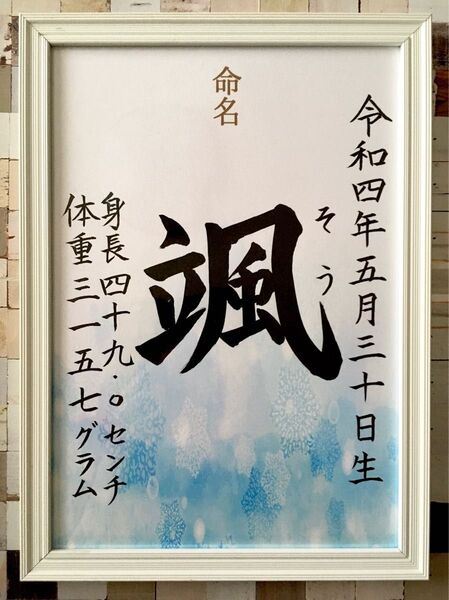 命名
令和四年五月三十日生
そう
颯
身長四十九.〇センチ
体重三一五七グラム